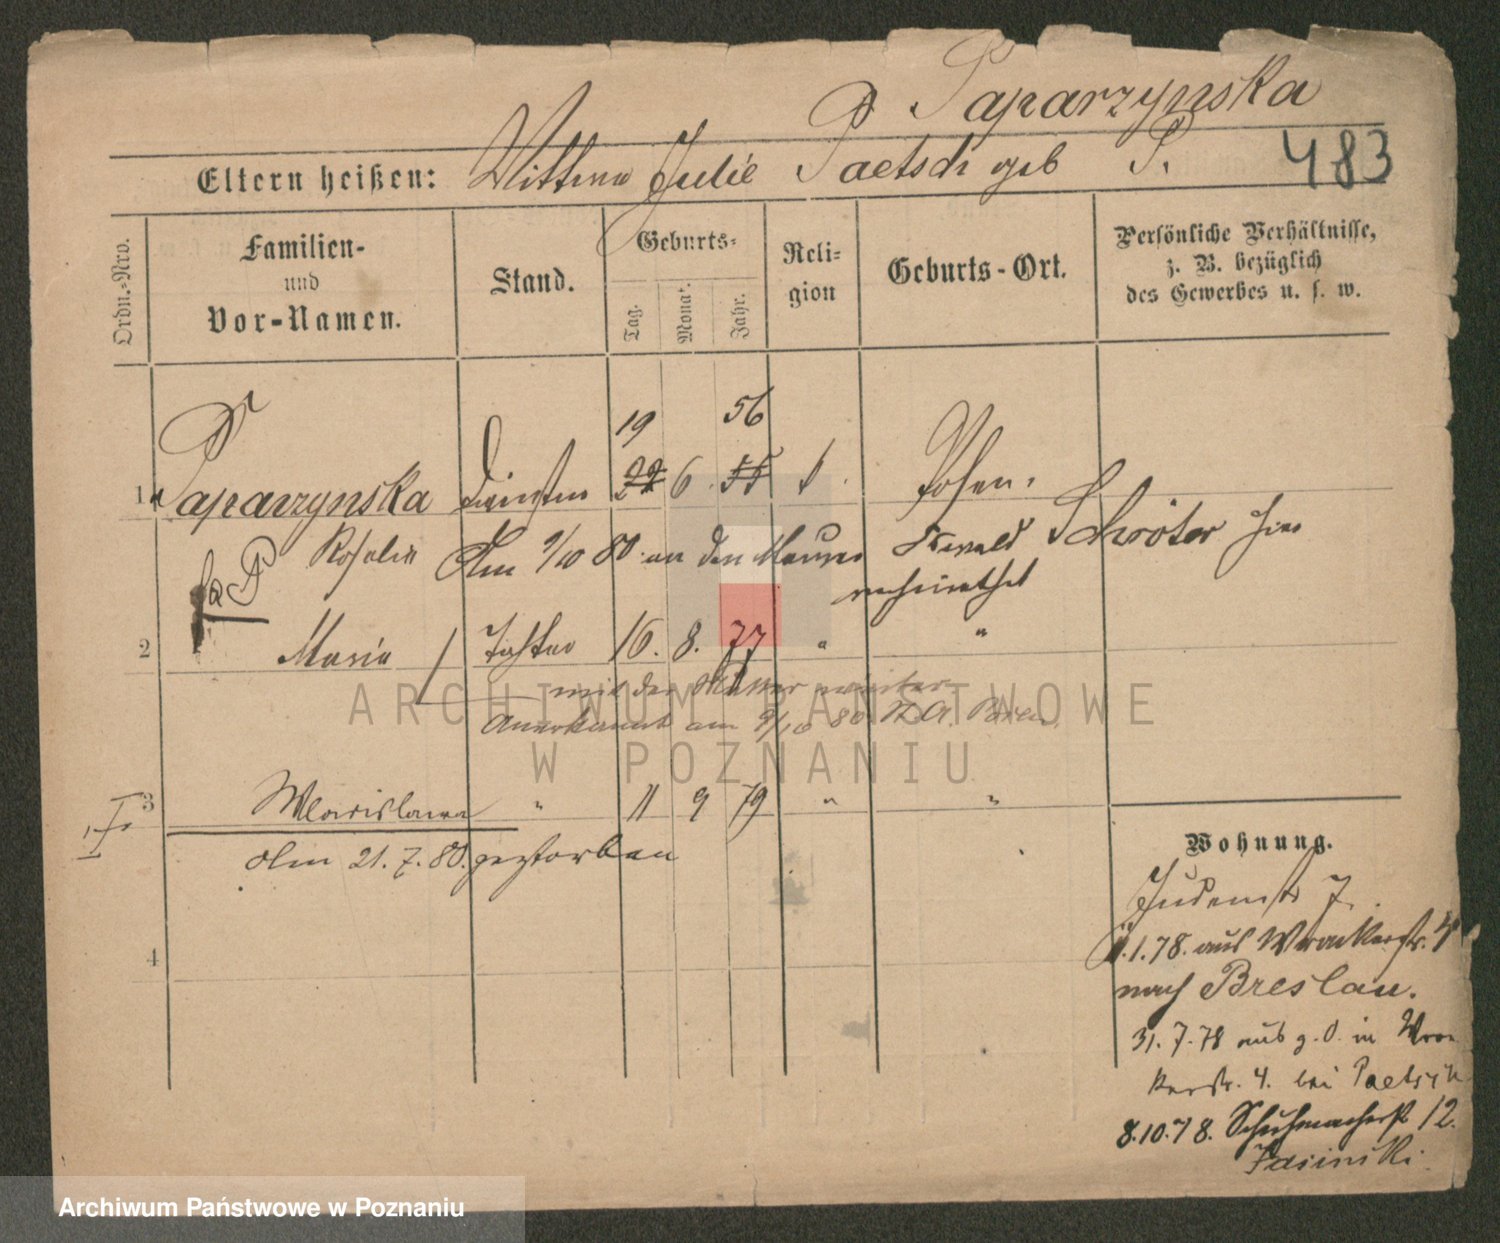 P Paparzynska
483
Eltern heißen: Wittwe Julie Paetsch geb P.
Ordn.-Nro.
Familien-
und
Vor-Namen.
Stand.
Geburts-
Tag.
Monat.
Jahr.
Reli-
gion
Geburts-Ort.
Persönliche Verhältnisse,
z. B. bezüglich
des Gewerbes u. s. w.
19 56
1 Paparzynska 22 6. 55 Posen.
Rosalie Am 9/10 80 an den Maurer Oswald Schröter hier
verheirathet
2 Maria Tochter 16. 8. 77 " "
mit der Mutter weiter
Anerkannt am 9/10 80 Posen
3 Wladislawa " 11 9 79 " "
Am 21. 7. 80. gestorben
4
Wohnung.
Judenstr 7.
1.78. aus Wronkerstr. 4
nach Breslau.
31. 7. 78 aus g. O. in Wron
kerstr. 4. bei Paetsch
8.10.78. Schuhmacherstr 12.
Jasinski.
ARCHIWUM PAŃSTWOWE
W POZNANIU
Archiwum Państwowe w Poznaniu